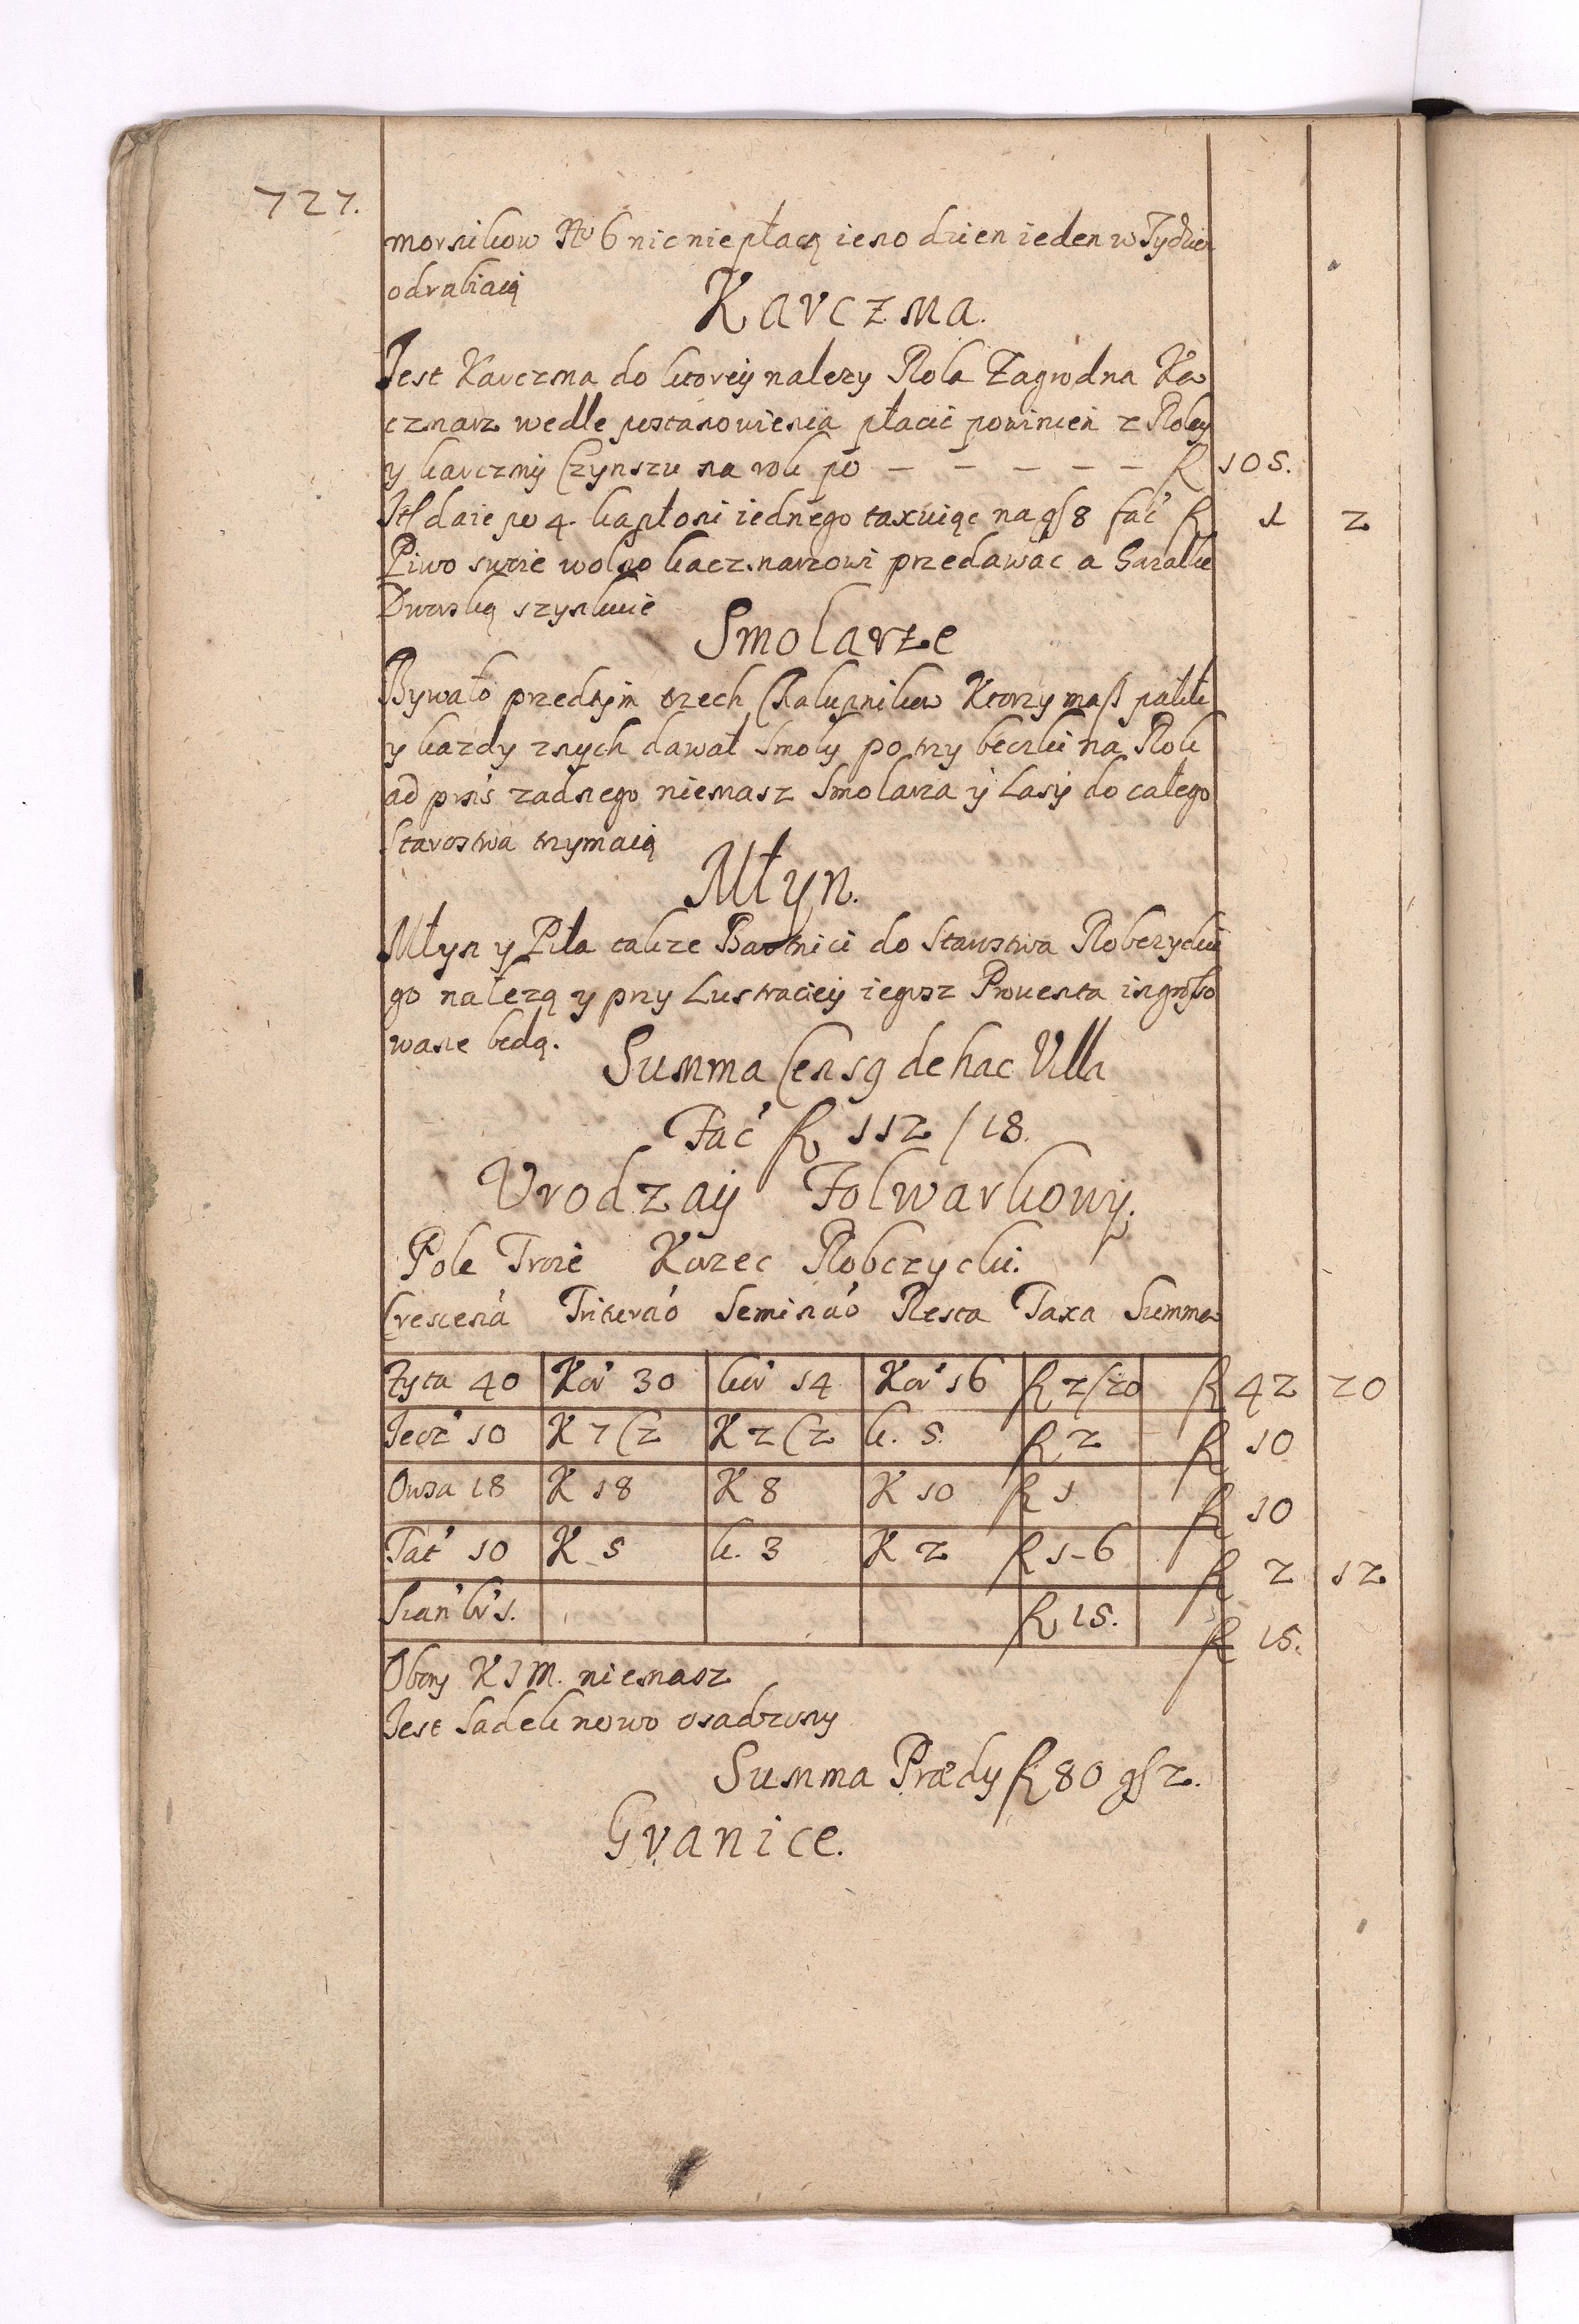 727.
mornikow No 6 nic nie płacą ieno dzien ieden w Tydzien
odrabiaią
Karczma.
Jest Karczma do ktorey nalezy Rola Zagrodna Ka
cznarz wedle postanowienia płacić powinień z Roley
y karczmÿ Czynszu na rok po — — — — — fl 105.
Itt daie po 4. kapłoni iednego taxuiąc na gſ 8 fać fl 1 2
Piwo swoie wolno kacznarzowi przedawác a Gorzałke
Dworską szynkuie
Smolarze
Bywało przedtÿm trzech Chałupnikow Ktorzy maſz palili
y kazdy znych dawał Smoły po trzy beczki na Rok
ad pnś zadnego niemasz Smolarza ÿ Lasÿ do całego
Starostwa trzymaią
Młyn.
Młyn y Piła takze Bartnici do Starostwa Robczycki
go nalezą y przy Lustracieÿ iegosz Prouenta ingroſso
wane będą.
Summa Censq de hac Villa
Fać fl 112 / 18.
Vrodzaÿ Folwarkowÿ.
Pole Troie Korzec Robczycki.
Crescená Trituraó Seminaó Resta Taxa Summa
Zyta 40 Kor' 30 kor' 14 Kor' 16 fl 2/20 fl 42 20
Jecz' 10 K 7 (2 K 2 (2 k. 5. fl 2 fl 10
Owsa 18 K 18 K 8 K 10 fl 1 fl 10
Tat' 10 K 5 k. 3 K 2 fl 1-6 fl 2 12
Sian' br' 1. fl 15. fl 15.
Obory K J M. niemasz
Jest Sadek nowo osadzony
Summa Prædÿ fl 80 gſ 2.
Granice.